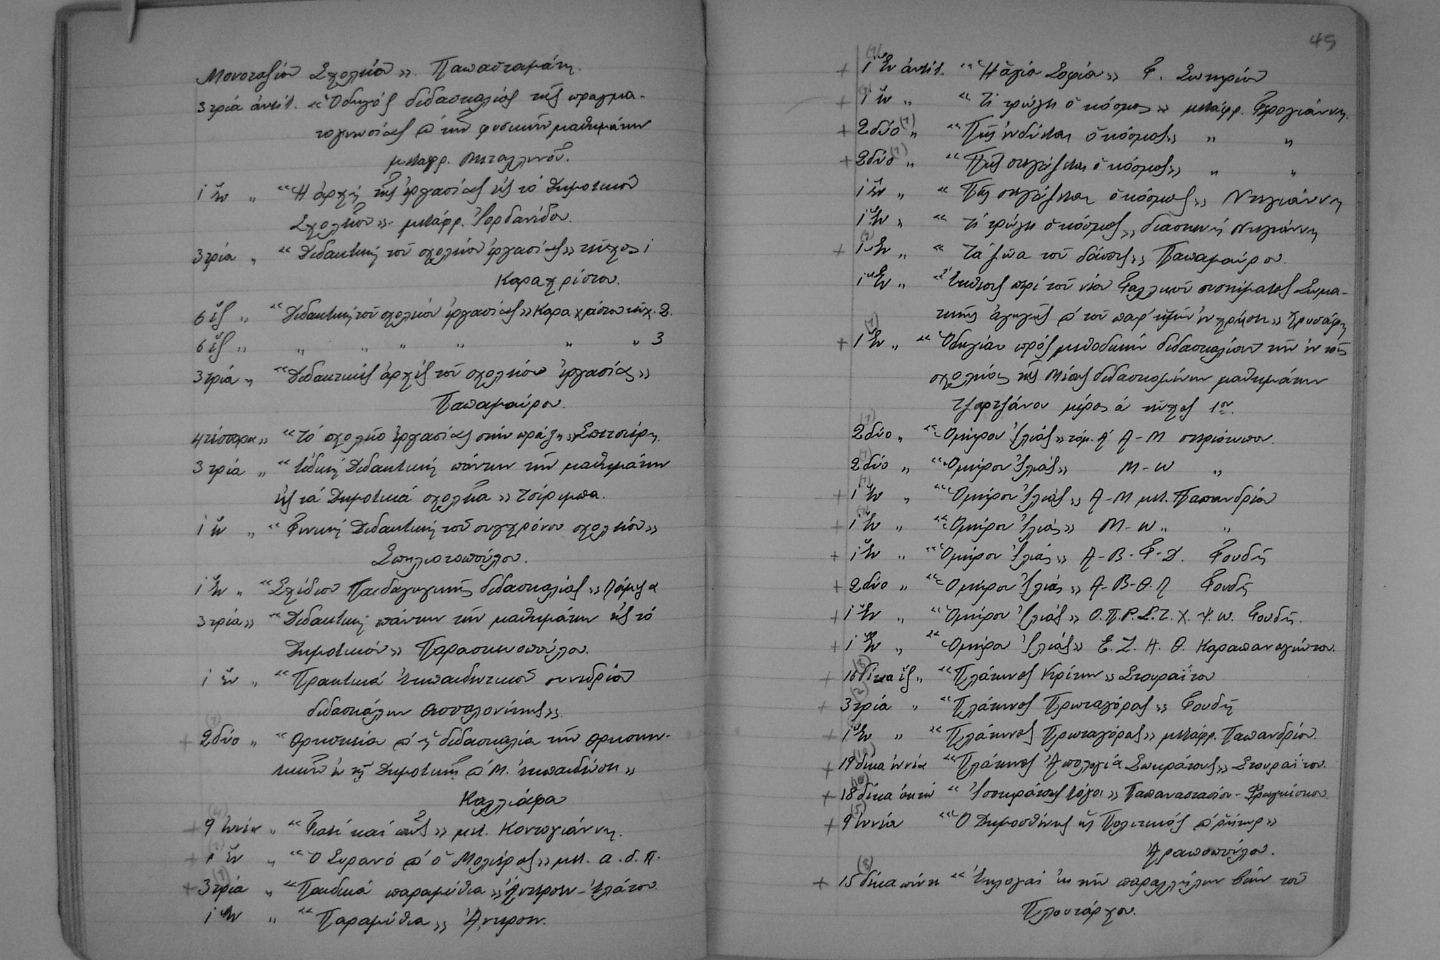 Μονοταξίου Σχολείου» Παπασταμάτη.
3 τρία ἀντίτ. «Ὁδηγός διδασκαλίας τῆς πραγμα-
τογνωσίας & τῶν φυσικῶν μαθημάτων
μετάφρ. Μεταλλινοῦ.
1 ἕν „ «Ἡ ἀρχή τῆς ἐργασίας εἰς τό Δημοτικόν
Σχολεῖον» μετάφρ. Ἰορδανίδου.
3 τρία „ «Διδακτική τοῦ σχολείου ἐργασίας» τεῦχος 1
Καραχρίστου.
6 ἕξ „ «Διδακτική τοῦ σχολείου ἐργασίας» Καραχρίστου τεῦχ. 2.
6 ἕξ „ „ „ „ „ „ „ 3
3 τρία „ «Διδακτικές ἀρχές τοῦ σχολείου ἐργασίας»
Παπαμαύρου.
4 τέσσαρα » «Τό σχολεῖο ἐργασίας στήν πράξη»
3 τρία „ «Εἰδική Διδακτική πάντων τῶν μαθημάτων
εἰς τά Δημοτικά σχολεῖα» Τσίριμπα.
1 ἕν „ «Γενική Διδακτική τοῦ συγχρόνου σχολείου»
Σπηλιοτοπούλου.
1 ἕν „ «Σχέδιον Παιδαγωγικῆς διδασκαλίας»
3 τρία » «Διδακτική πάντων τῶν μαθημάτων εἰς τό
Δημοτικόν» Παρασκευοπούλου.
1 ἕν „ «Πρακτικά ἐκπαιδευτικοῦ συνεδρίου
διδασκάλων Θεσσαλονίκης».
+ 2 δύο „ «Θρησκεία & ἡ διδασκαλία τῶν θρησκευ-
τικῶν ἐν τῇ Δημοτικῇ & Μ. ἐκπαιδεύσει»
Καλλιάφα
+ 9 ἐννέα „ «Γιατί καί πῶς» μετ. Κοντογιάννη.
+ 1 ἕν „ «Ὁ Συρανό & ὁ Μολιέρος» μετ. α. δ. π.
+ 3 τρία „ «Παιδικά παραμύθια» Ἄντερσεν - Ἐλάτου
1 ἕν „ «Παραμύθια» Ἄντερσεν.
49
+ 1 ἕν ἀντίτ. «Ἡ ἁγία Σοφία» Γ. Σωτηρίου
+ 1 ἕν „ «Τί τρώγει ὁ κόσμος» μετάφρ. Φραγιάννη.
+ 2 δύο „ «Πῶς ἐνδύεται ὁ κόσμος» „ „
+ 2 δύο „ «Πῶς στεγάζεται ὁ κόσμος» „ „
1 ἕν „ «Πῶς στεγάζεται ὁ κόσμος» Ντεγιάννη
1 ἕν „ «Τί τρώγει ὁ κόσμος» διασκευή Ντεγιάννη
+ 1 ἕν „ «Τά ζῶα τοῦ δάσους» Παπαμαύρου.
1 ἕν „ «Ἔκθεσις περί τοῦ νέου Γαλλικοῦ συστήματος Σωμα-
τικῆς ἀγωγῆς & τοῦ παρ' ἡμῖν ἐν χρήσει» Χρυσάφη
+ 1 ἕν „ «Ὁδηγίαι πρός μεθοδικήν διδασκαλίαν τῶν ἐν τοῖς
σχολείοις τῆς Μέσης διδασκομένων μαθημάτων
Τζαρτζάνου μέρος ά τεῦχος 1ον.
2 δύο „ «Ὁμήρου Ἰλιάς» τόμ. Α' Α-Μ στερεότυπα.
2 δύο „ «Ὁμήρου Ἰλιάς» Μ-ω „
+ 1 ἕν „ «Ὁμήρου Ἰλιάς» Α-Μ μετ. Παπανδρέου
+ 1 ἕν „ «Ὁμήρου Ἰλιάς» Μ-ω „ „
+ 1 ἕν „ «Ὁμήρου Ἰλιάς» Α-Β-Γ-Δ. Γουδῆ
+ 2 δύο „ «Ὁμήρου Ἰλιάς» Α-Β-Θ-Π Γουδῆ
+ 1 ἕν „ «Ὁμήρου Ἰλιάς» Ο.Π.Ρ.Σ.Τ. Χ. Ψ. ω. Γουδῆ.
+ 1 ἕν „ «Ὁμήρου Ἰλιάς» Ε. Ζ. Η. Θ. Καραπαναγιώτου.
+ 16 δέκα ἕξ „ «Πλάτωνος Κρίτων» Σπουραΐτου
+ 3 τρία „ «Πλάτωνος Πρωταγόρας» Γουδῆ
+ 1 ἕν „ «Πλάτωνος Πρωταγόρας» μετάφρ. Παπανδρέου.
+ 19 δέκα ἐννέα „ «Πλάτωνος Ἀπολογία Σωκράτους» Σπουραΐτου.
+ 18 δέκα ὀκτώ „ «Ἰσοκράτους Λόγοι» Παπαναστασίου - Φραγκίσκου
+ 9 ἐννέα «Ὁ Δημοσθένης ὡς Πολιτικός & ρήτωρ»
Ἀραποπούλου.
+ 15 δέκα πέντε «Ἐκλογαί ἐκ τῶν παραλλήλων βίων τοῦ
Πλουτάρχου.